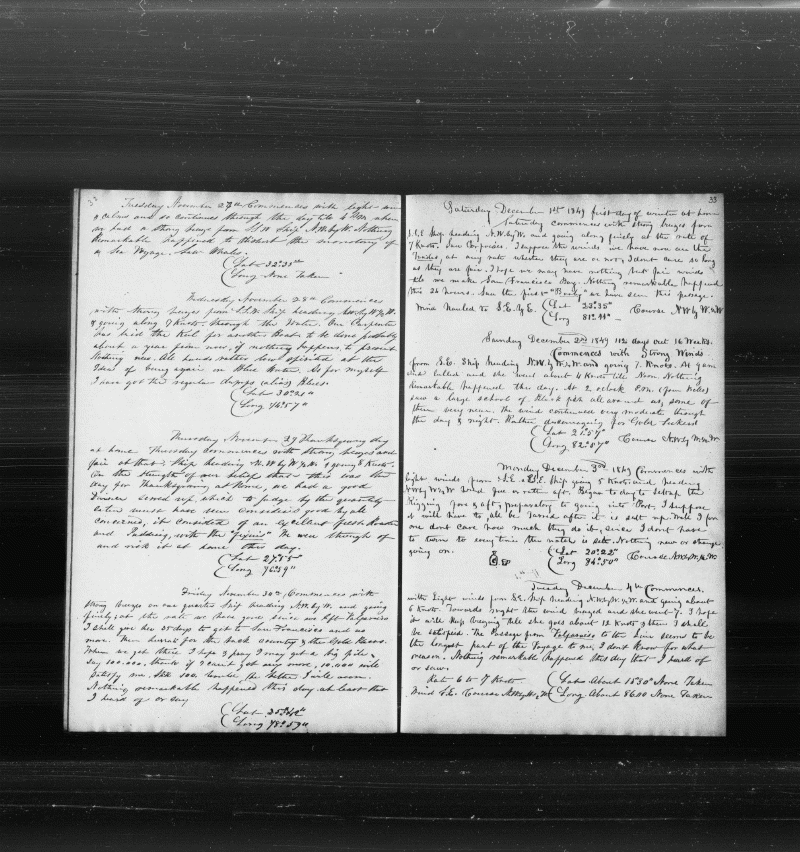 Tuesday November 27th Commences with light
& calms and so continues through the day till 4 P.M. when
we had a strong breeze from Ship N.W. by W. Nothing
Remarkable happened to the monotony of
a Sea Voyage. Saw Whales
Lat 32°35"
Long None Taken
Wednesday November 28th Commences
with strong breezes from S.S.E. Ship heading N.W. by W.
& going along 7 Knots through the Water. Our Carpenter
has laid the Keel for another Boat to be done probably
about a year from now, if nothing happens to prevent
Nothing new. All hands rather low spirited at the
Idea of being again on Blue Water. As for myself
I have got the regular dumps (alias) Blues.
Lat 30°21"
Long 74°57"
Thursday November 29 Thanksgiving day
at home. Thursday commences with strong breezes and
fair at that. Ship heading N.W. by W. & going 8 Knots.
On the strength of our that this was the
day for Thanksgiving at Home, we had a good
Dinner served up which to judge by the quantity
eaten must have been Considered good by all
concerned, it consisted of an Fresh Roast
and Pudding, with the "fixins" We went through
and risk it at home this day.
Lat 27°55"
Long 76°59"
Friday November 30th Commences with
strong breezes on our quarter Ship heading N.W. by W. and going
finely, at the rate we have gone since we left Valparaiso
I shall give her 25 days to get to San Francisco and no
more. Then hurrah for the back country & the Gold Placers.
When we get there I hope & pray I may get a big pile
say 100.000, though if I can't get any more, 10.000 will
satisfy me. the sooner the better I will
Nothing remarkable happened this day at least that
I heard of or saw
Lat 25°42"
Long 78°59"
33
Saturday December 1st 1849 first day of winter at home
Saturday commences with strong breezes from
S.S.E. Ship heading N.W. by W. and going along finely at the rate of
7 Knots. Saw Porpoises. I suppose the winds we have now are the
Trades, at any rate whether they are or not, I dont care so long
as they are fair. I hope we may have nothing but fair winds
till we make San Francisco Bay. Nothing remarkable happened
this 24 hours. Saw the first "Booby" we have seen this passage.
Wind hauled to S.E. by E. Lat 23°35" Course N.W. by W. ½ W
Long 81°11"
Sunday December 2nd 1849 112 days out 16 Weeks.
Commences with Strong Winds
from S.E. Ship heading N.W. by W. ½ W. and going 7 Knots. At 9 am
wind lulled and she went about 4 Knots till Noon. Nothing
Remarkable happened the day. At 2 oclock P.M.
saw a large school of Black fish all around us, some of
them very near. The wind continued very moderate through
the day & night. Rather discouraging for Gold Seekers
Lat 21°57" Course N.W. by W. ½ W.
Long 82°57"
Monday December 3rd 1849 Commences with
light winds from S.E. & E.S.E. Ship going 5 Knots and heading
N.W. by W. ½ W. Began to day to set up the
Rigging fore & aft, preparatory to going into Port. I suppose
it will have to all be tarred after it is set up. Well I for
one dont care how much they do it, since I dont have
to turn to every time the watch is set. Nothing new or strange
going on. Lat 20°22" Course N.W. by W. ½ W.
Long 84°50"
Tuesday December 4th Commences
with Light winds from S.E. Ship heading N.W. by W. ½ W. and going about
6 Knots. Towards night the wind breezed and she went 7. I hope
it will keep breezing till she goes about 12 Knots & then I shall
be satisfied. The Passage from Valparaiso to the Line seems to be
the longest part of the Voyage to me, I dont know for what
reason. Nothing remarkable happened this day that I heard of
or saw.
Rate 6 to 7 Knots. Lat About 18°30" None Taken
Wind S.E. Course N.W. by W. ½ W Long About 86.00 None Taken